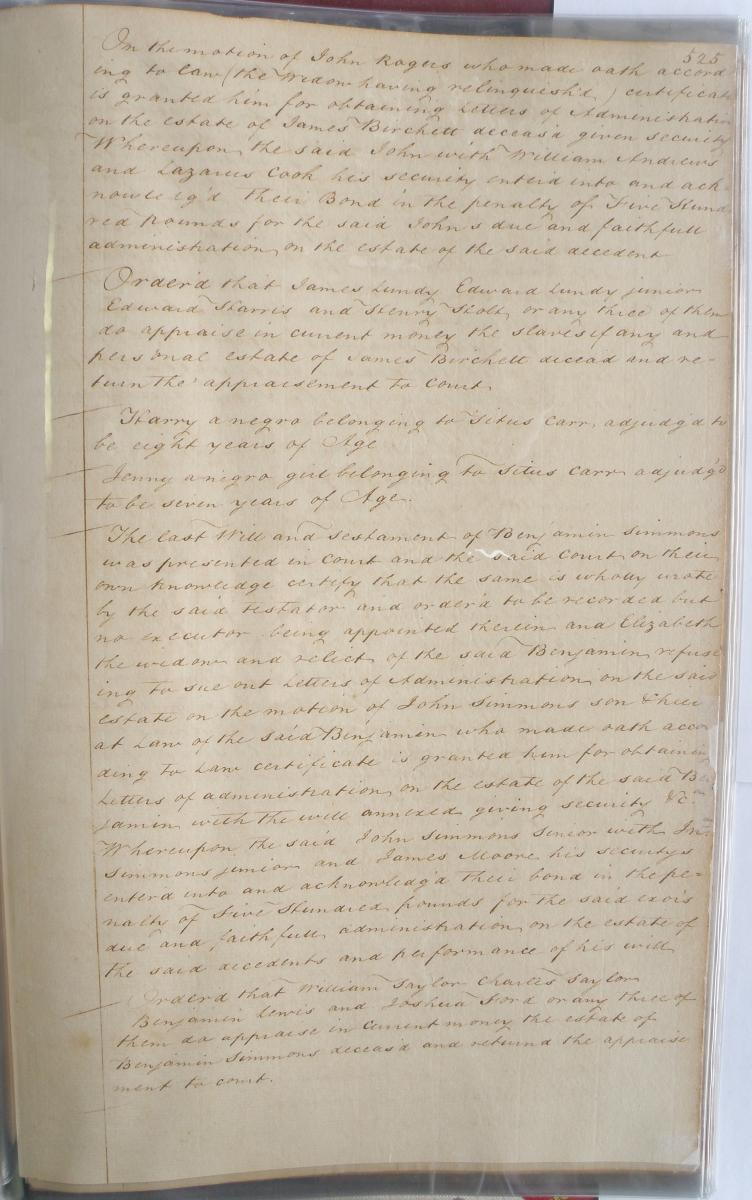 525
On the motion of John Rogers who made oath accord
ing to law (the Widow having relinquesh'd) certificate
is granted him for obtaining Letters of Administration
on the estate of James Birchett deceas'd given security
Whereupon the said John with William Andrews
and Lazarus Cook his security enter'd into and ack
nowledg'd their Bond in the penalty of Five Hund
red Pounds for the said John's due and faithfull
administration on the estate of the said decedent
Order'd that James Lundy Edward Lundy junior
Edward Harris and Henry Scott or any three of them
do appraise in curent money the slaves if any and
personal estate of James Birchett decead and re-
turn the appraisement to Court.
Harry a negro belonging to Titus Carr, adjudg'd to
be eight years of Age
Jenny a negro girl belonging to Titus Carr adjudg'd
to be seven years of Age.
The last Will and Testament of Benjamin Simmons
was presented in Court and the said Court on their
own knowledge certify that the same is wholly wrote
by the said testator and order'd to be recorded but
no executor being appointed therein and Elizabeth
the widow and relict of the said Benjamin refuse
ing to sue out Letters of Administration on the said
estate on the motion of John Simmons son & heir
at Law of the said Benjamin who made oath accor
ding to Law certificate is granted him for obtainin
Letters of administration on the estate of the said Ben
jamin with the will annexed giving security &c.
Whereupon the said John Simmons Senior with Jno
Simmons junior and James Moore his securitys
enter'd into and acknowledg'd their bond in the pe-
nalty of Five Hundred pounds for the said
due and faithfull administration on the estate of
the said decedents and performance of his will
Order'd that William Taylor Charles Taylor
Benjamin Lewis and Joshua Ford or any three of
them do appraise in curent money the estate of
Benjamin Simmons deceas'd and returnd the appraise
ment to court.